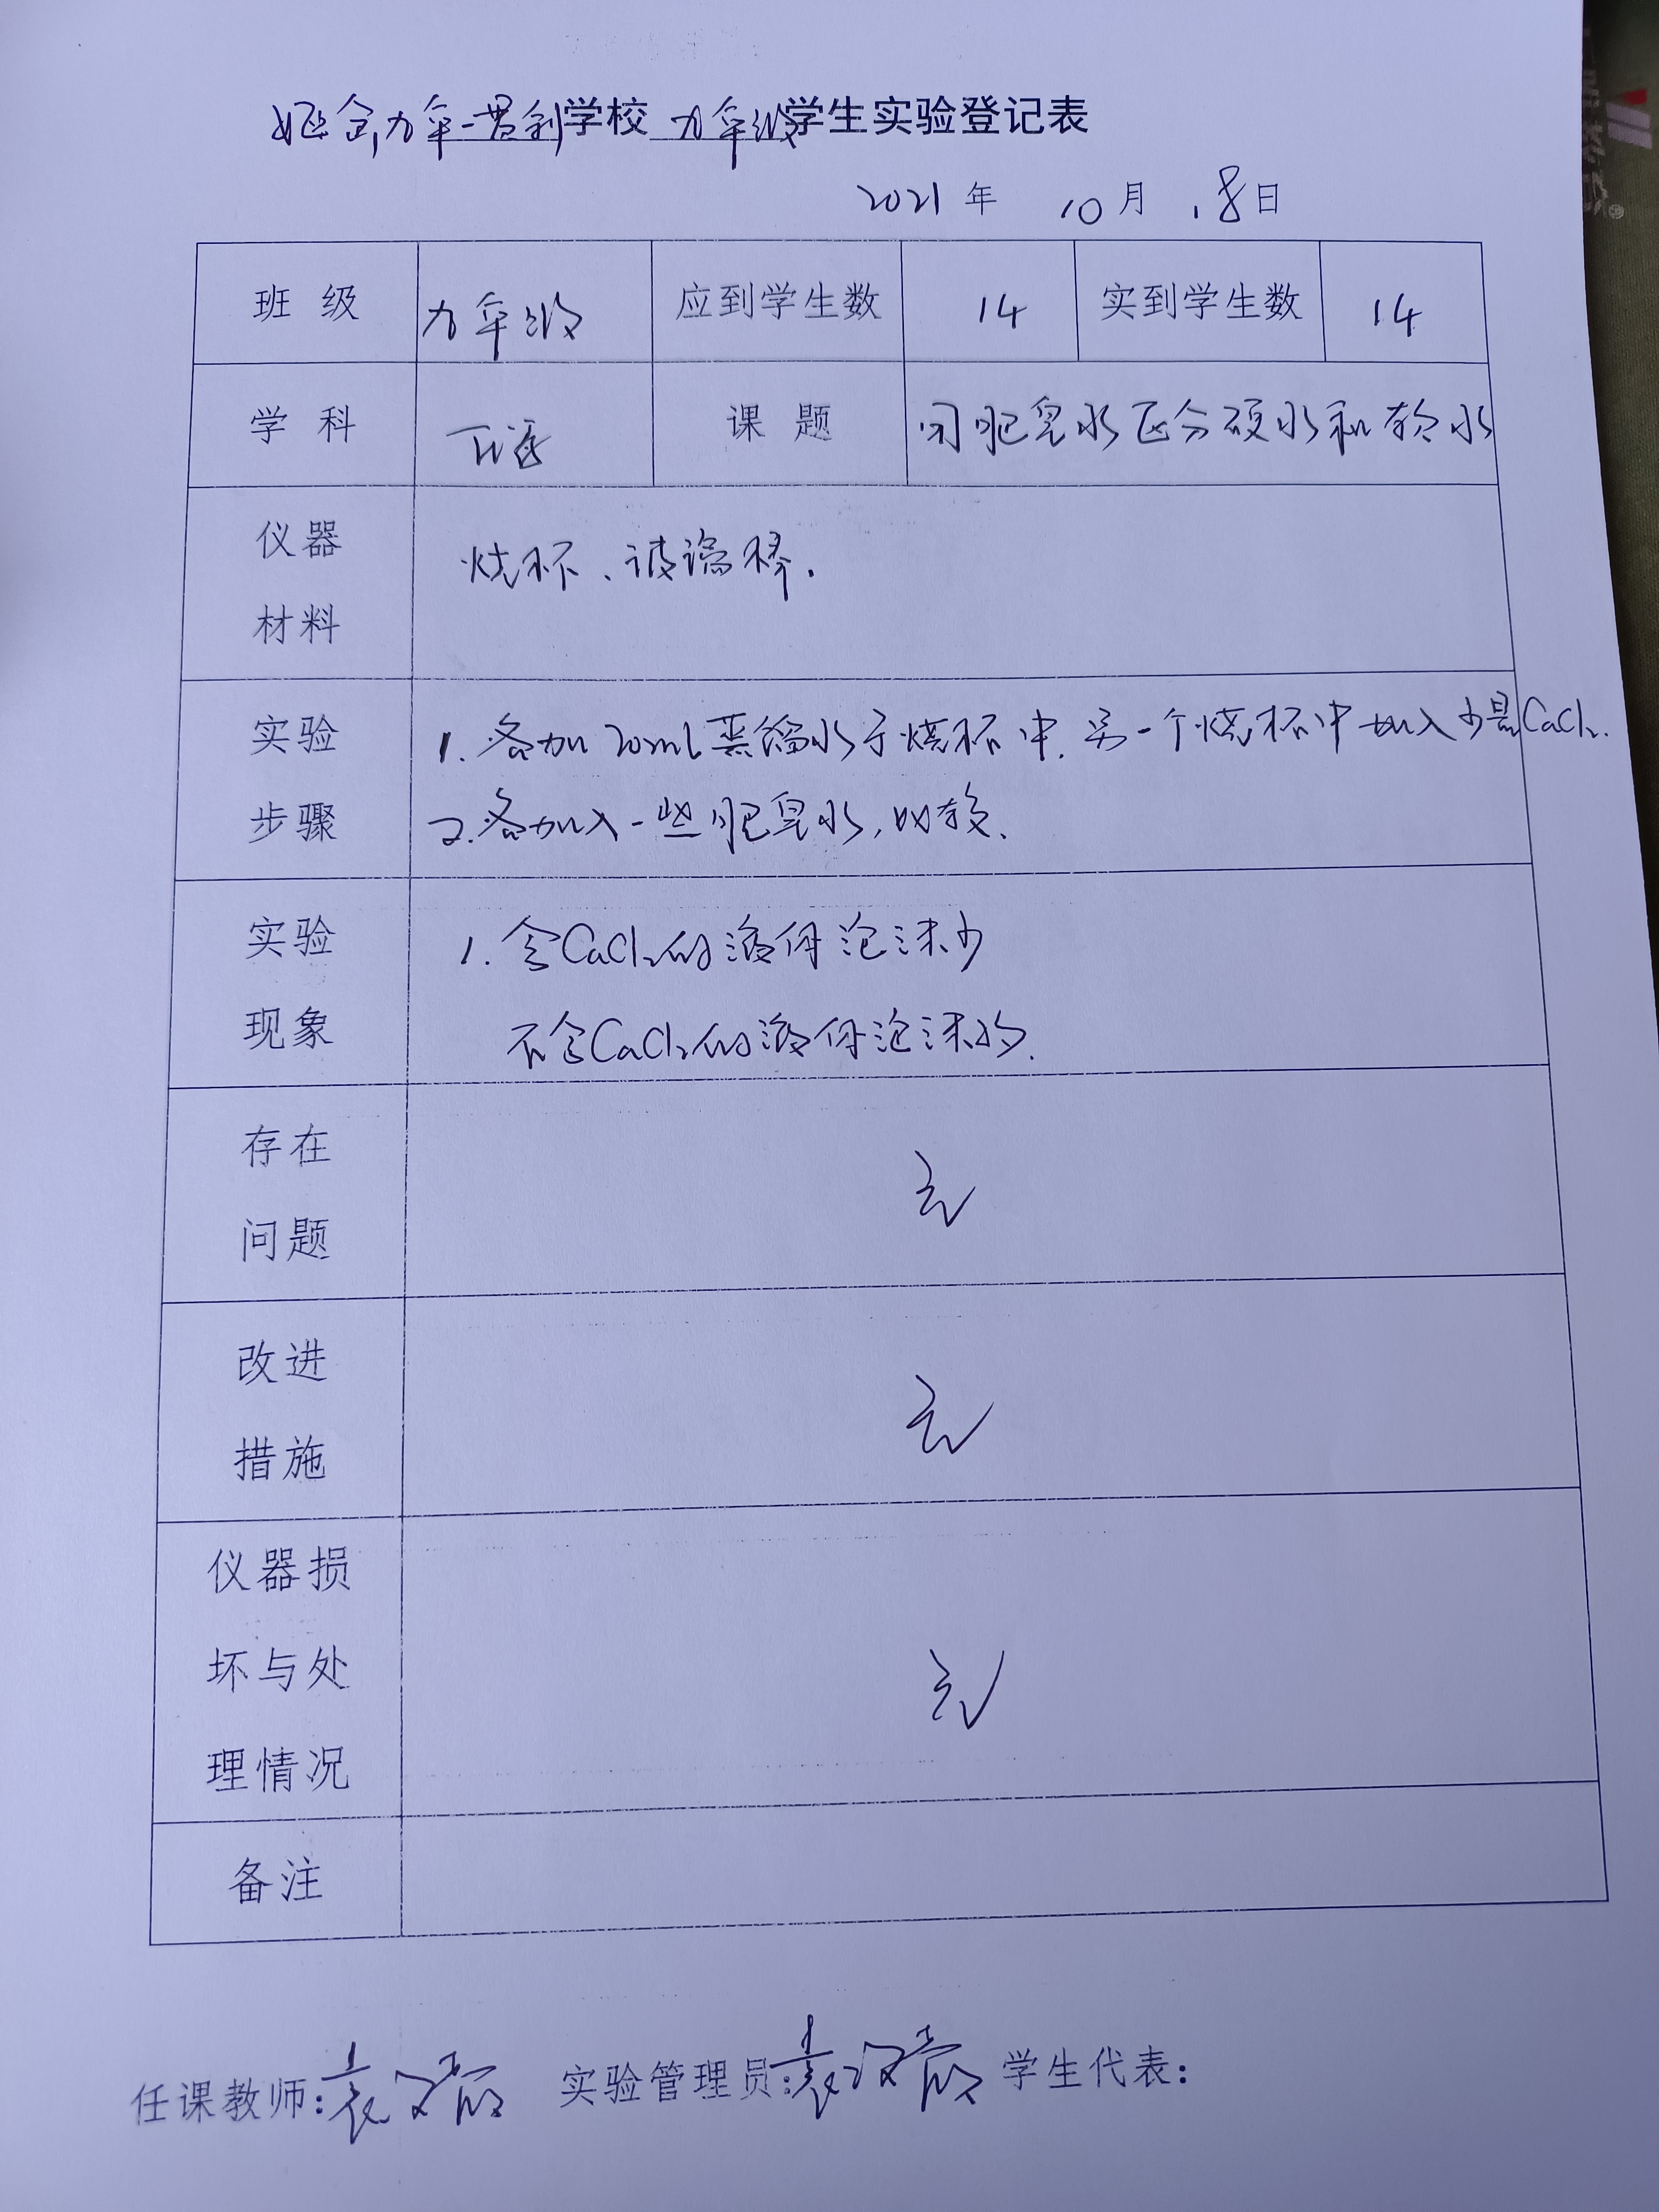 九年一贯制学校 九年级学生实验登记表
2021年 10月 18日
班 级 九年级 应到学生数 14 实到学生数 14
学 科 课 题 用肥皂水区分硬水和软水
仪器
材料
烧杯、玻璃棒.
实验
步骤
1. 各加20mL蒸馏水于烧杯中. 另一个烧杯中加入少量CaCl₂.
2. 各加入一些肥皂水,比较.
实验
现象
1. 含CaCl₂的液体泡沫少
不含CaCl₂的液体泡沫多.
存在
问题
无
改进
措施
无
仪器损
坏与处
理情况
无
备注
任课教师: 实验管理员: 学生代表: